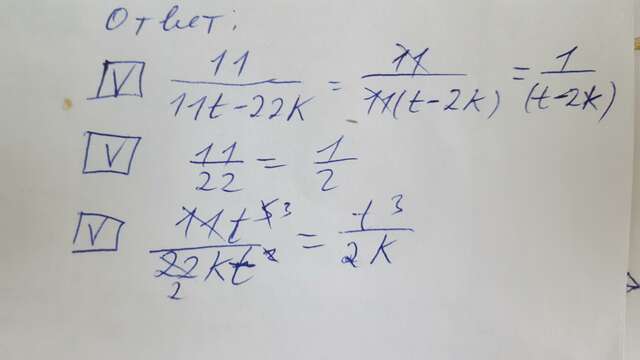 Ответ:
V 11/(11t-22k) = 11/(11(t-2k)) = 1/(t-2k)
V 11/22 = 1/2
V 11t⁵ ³/(22kt²) = t³/(2k)
2